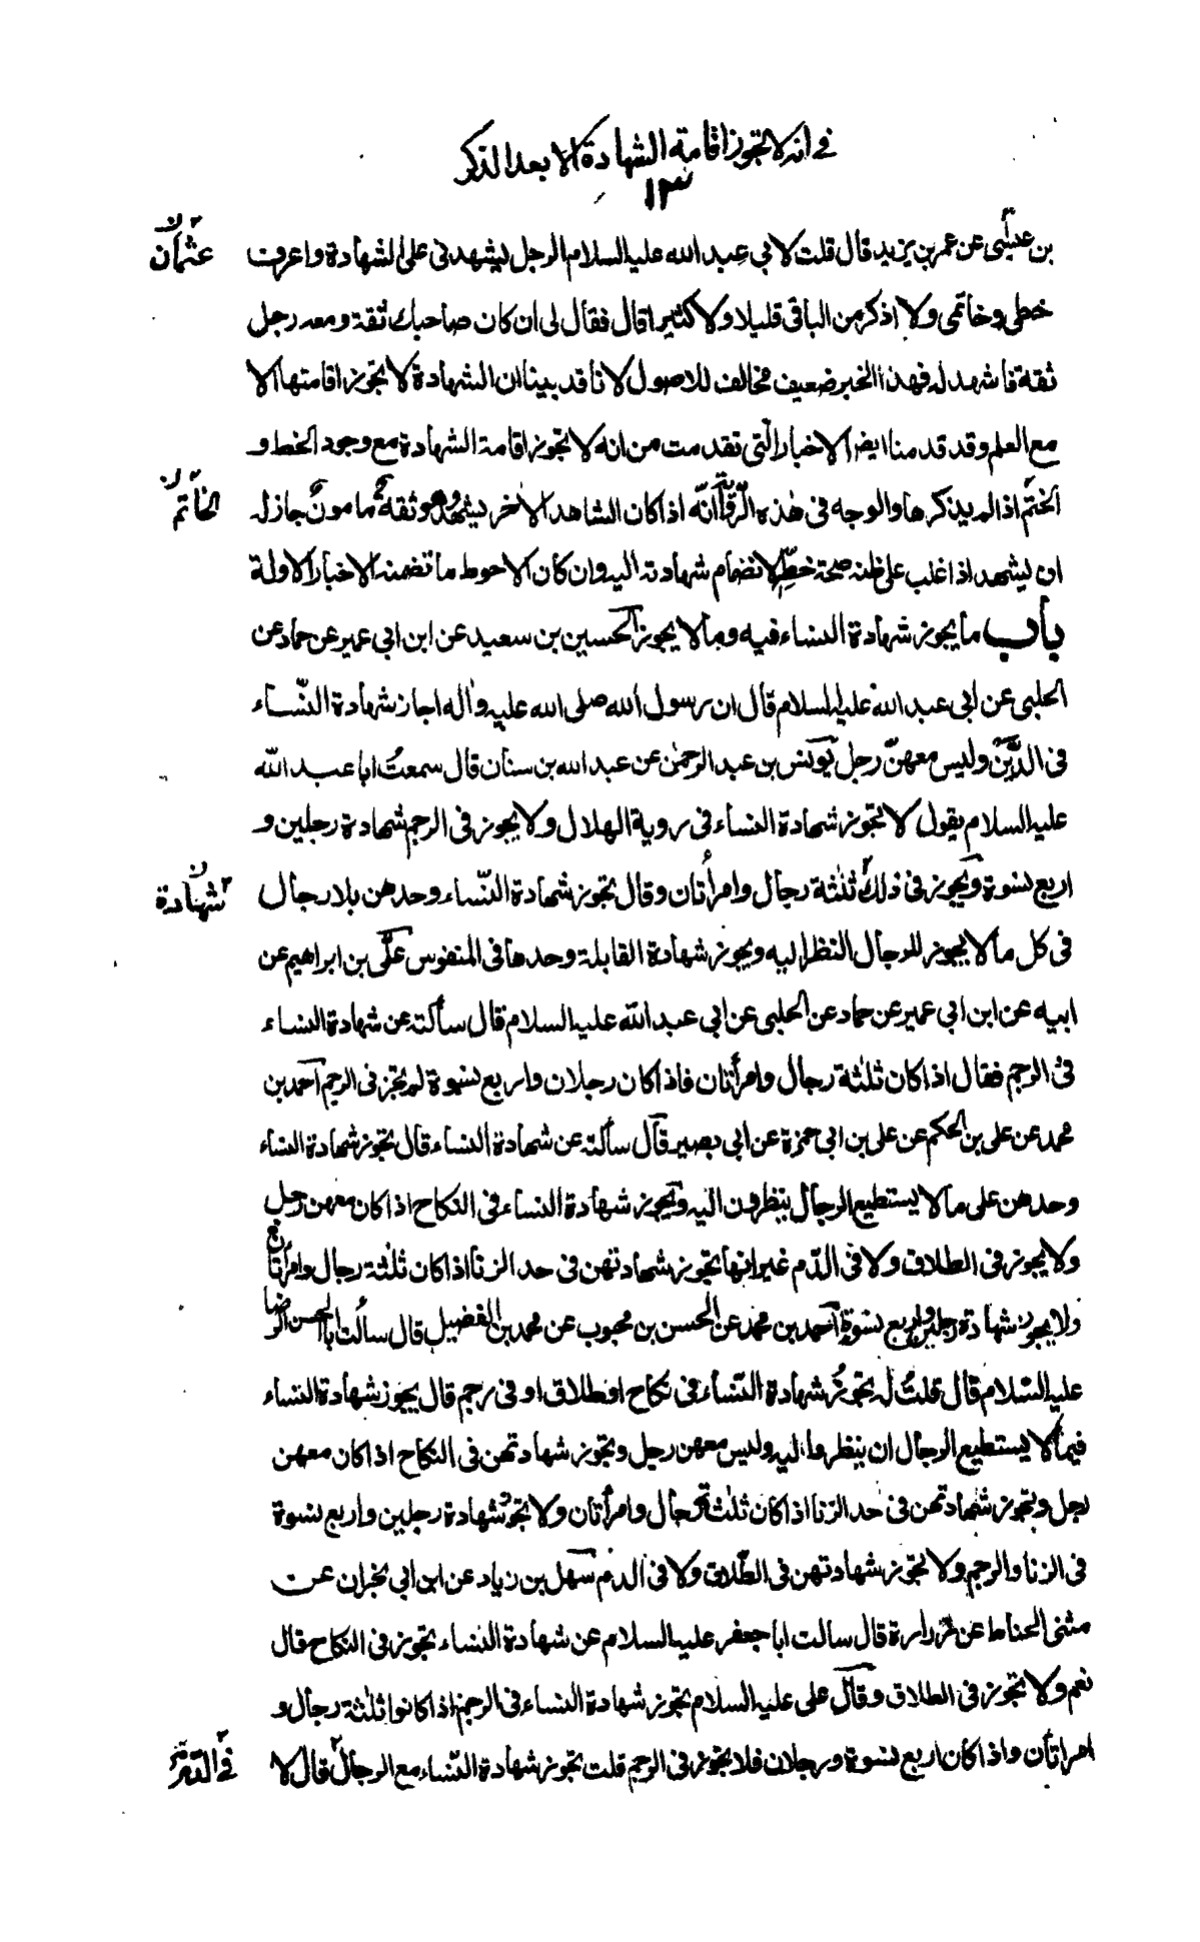 في انه لا تجوز اقامة الشهادة الا بعد الذكر
١٣
بن عيسى عن عمر بن يزيد قال قلت لابي عبد الله عليه السلام الرجل ليشهدني على الشهادة واعرف
عثمان
خطى وخاتمى ولا اذكر من الباقى قليلا ولا كثيرا قال فقال لى ان كان صاحبك ثقة ومعه رجل
ثقة فاشهد له فهذا الخبر ضعيف مخالف للاصول لانا قد بينا ان الشهادة لا تجوز اقامتها الا
مع العلم وقد قدمنا ايضا الاخبار الّتى تقدمت من انه لا تجوز اقامة الشهادة مع وجود الخط و
الختم اذا لم يذكرها والوجه فى هذه الرّواية انّه اذا كان الشاهد الاخر يشهد وهو ثقة مامون جاز له
الخاتم
ان يشهد اذا غلب على ظنه صحة خطّه لانضمام شهادته اليه وان كان الاحوط ما تضمنه الاخبار الاولة
باب ما يجوز شهادة النساء فيه وما لا يجوز الحسين بن سعيد عن ابن ابى عمير عن حماد عن
الحلبى عن ابى عبد الله عليه السلام قال ان رسول الله صلى الله عليه واله اجاز شهادة النّساء
فى الدَّين وليس معهنّ رجل يونس بن عبد الرحمن عن عبد الله بن سنان قال سمعتُ ابا عبد الله
عليه السلام يقول لا تجوز شهادة النساء فى روية الهلال ولا يجوز فى الرجم شهادة رجلين و
اربع نسوة ويجوز فى ذلك ثلثة رجال وامرأتان وقال تجوز شهادة النّساء وحدهن بلا رجال
شهادة
فى كل ما لا يجوز للرجال النظر اليه ويجوز شهادة القابلة وحدها فى المنفوس علىّ بن ابراهيم عن
ابيه عن ابن ابى عمير عن حماد عن الحلبى عن ابى عبد الله عليه السلام قال سألته عن شهادة النساء
فى الرجم فقال اذا كان ثلثة رجال وامرأتان فاذا كان رجلان واربع نسوة لم يجز فى الرجم احمد بن
محمد عن على بن الحكم عن على بن ابى حمزة عن ابى بصير قال سألته عن شهادة النساء قال تجوز شهادة النساء
وحدهن على ما لا يستطيع الرجال ينظرون اليه ويجوز شهادة النساء فى النكاح اذا كان معهن رجل
ولا يجوز فى الطلاق ولا فى الدّم غير انها تجوز شهادتهن فى حد الزنا اذا كان ثلثة رجال وامرأتان
ولا يجوز شهادة رجلين واربع نسوة احمد بن محمد عن الحسن بن محبوب عن محمد بن الفضيل قال سألت ابا الحسن الرضا
عليه السّلام قال قلتُ له تجوزُ شهادة النّساء فى نكاح او طلاق او فى رجم قال يجوز شهادة النساء
فيما لا يستطيع الرجال ان ينظروا اليه وليس معهن رجل وتجوز شهادتهن فى النكاح اذا كان معهن
رجل وتجوز شهادتهن فى حد الزنا اذا كان ثلاثة رجال وامرأتان ولا تجوز شهادة رجلين واربع نسوة
فى الزنا والرجم ولا تجوز شهادتهن فى الطّلاق ولا فى الدم سهل بن زياد عن ابن ابى نجران عن
مثنى الحناط عن زرارة قال سالت ابا جعفر عليه السلام عن شهادة النساء تجوز فى النكاح قال
نعم ولا تجوز فى الطلاق وقال على عليه السلام تجوز شهادة النساء فى الرجم اذا كانوا ثلثة رجال و
امراتان واذا كان اربع نسوة ورجلان فلا تجوز فى الرجم قلت تجوز شهادة النّساء مع الرجال قال لا
فى الدّم